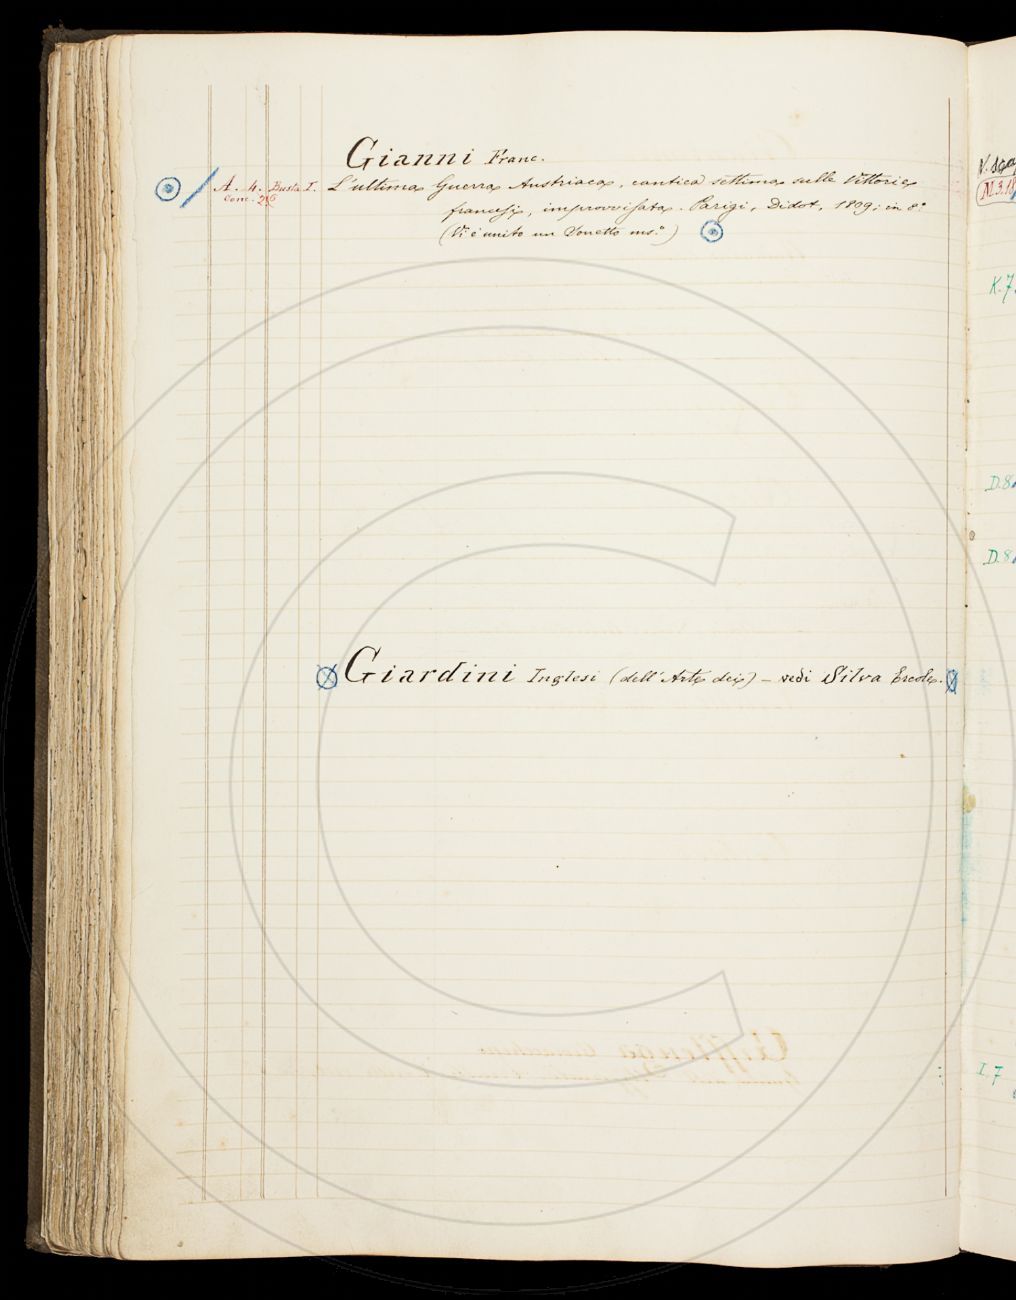 Gianni Franc.
A. h. Busta I. L'ultima Guerra Austriaca, cantica settima sulle Vittorie
Conc. 26
francesi, improvvisata. Parigi, Didot, 1809; in 8.°
(Vi è unito un Sonetto ms.°)
Giardini Inglesi (dell'Arte dei) – vedi Silva Ercole.
M.3.18
K.7.
D.8
D.8
I.7